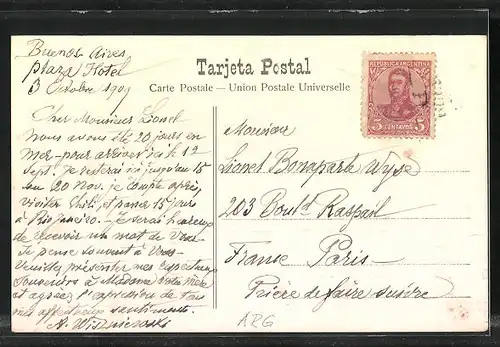 Buenos Aires
Plaza Hotel
3 Octobre 1909
Cher Monsieur Lionel
nous avons été 20 jours en
mer - pour arriver ici le 12
Sept. Je resterai ici jusqu'au 15
ou 20 Nov. je compte après
visiter Chili, et passer 15 jours
à Rio Janeiro. - Je serai heureux
de recevoir un mot de Vous
Je pense souvent à Vous
Veuillez présenter mes respectueux
Souvenirs à Madame Votre mère
et agréez l'expression de tous
mes affectueux sentiments.
A. Wiszniewski
Tarjeta Postal
Carte Postale — Union Postale Universelle
REPUBLICA ARGENTINA
5 CENTAVOS 5
Monsieur
Lionel Bonaparte Wyse
203 Boul.d Raspail
France Paris
Prière de faire suivre
ARG